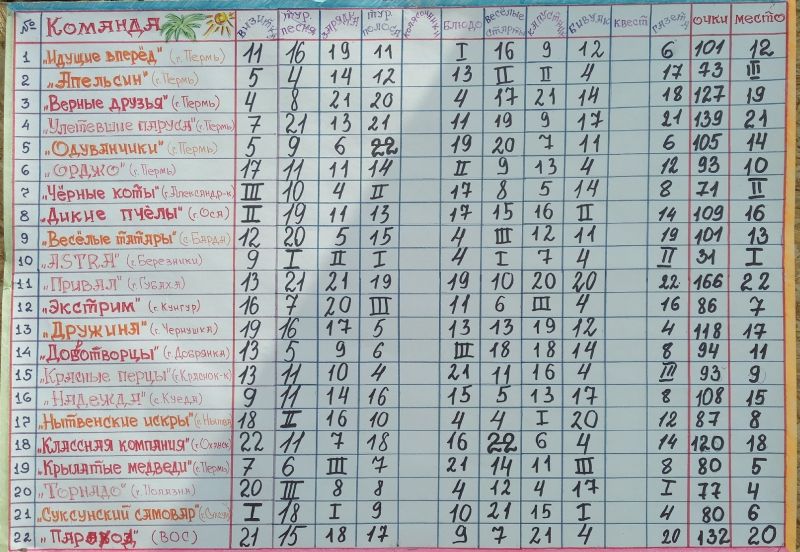 № КОМАНДА ВИЗИТКА ТУР. ПЕСНЯ ЗАРЯДКА ТУР. ПОЛОСА БЛЮДО ВЕСЁЛЫЕ СТАРТЫ КАПУСТНИК БИВУАК КВЕСТ ГАЗЕТА ОЧКИ МЕСТО
1 „Идущие вперёд" (г. Пермь) 11 16 19 11 I 16 9 12 6 101 12
2 „Апельсин" (г. Пермь) 5 4 14 12 13 II II 4 17 73 III
3 „Верные друзья" (г. Пермь) 4 8 21 20 4 17 21 14 18 127 19
4 „Улетевшие паруса" (г. Пермь) 7 21 13 21 11 19 9 17 21 139 21
5 „Одуванчики" (г. Пермь) 5 9 6 22 19 20 7 11 6 105 14
6 „ОРДЖО" (г. Пермь) 17 11 11 14 II 9 13 4 12 93 10
7 „Чёрные коты" (г. Александр-к) III 10 4 II 17 8 5 14 8 71 II
8 „Дикие пчёлы" (г. Оса) II 19 11 13 17 15 16 II 14 109 16
9 „Весёлые татары" (с. Барда) 12 20 5 15 4 III 12 11 19 101 13
10 „ASTRA" (г. Березники) 9 I II I 4 I 7 4 II 31 I
11 „Привал" (г. Губаха) 13 21 21 19 19 10 20 20 22 166 22
12 „Экстрим" (г. Кунгур) 16 7 20 III 11 6 III 4 16 86 7
13 „Дружина" (г. Чернушка) 19 16 17 5 13 13 19 12 4 118 17
14 „Добротворцы" (г. Добрянка) 13 5 9 6 III 18 18 14 8 94 11
15 „Красные перцы" (г. Краснок-к) 13 11 10 4 21 11 16 4 III 93 9
16 „Надежда" (с. Куеда) 9 11 14 16 15 5 13 17 8 108 15
17 „Нытвенские искры" (г. Нытва) 18 II 16 10 4 4 I 20 12 87 8
18 „Классная компания" (г. Оханск) 22 11 7 18 16 22 6 4 14 120 18
19 „Крылатые медведи" (г. Пермь) 7 6 III 7 21 14 11 III 8 80 5
20 „Торнадо" (г. Полазна) 20 III 8 8 4 12 4 17 I 77 4
21 „Суксунский самовар" I 18 I 9 10 21 15 I 4 80 6
22 „Пароход" (ВОС) 21 15 18 17 9 7 21 4 20 132 20